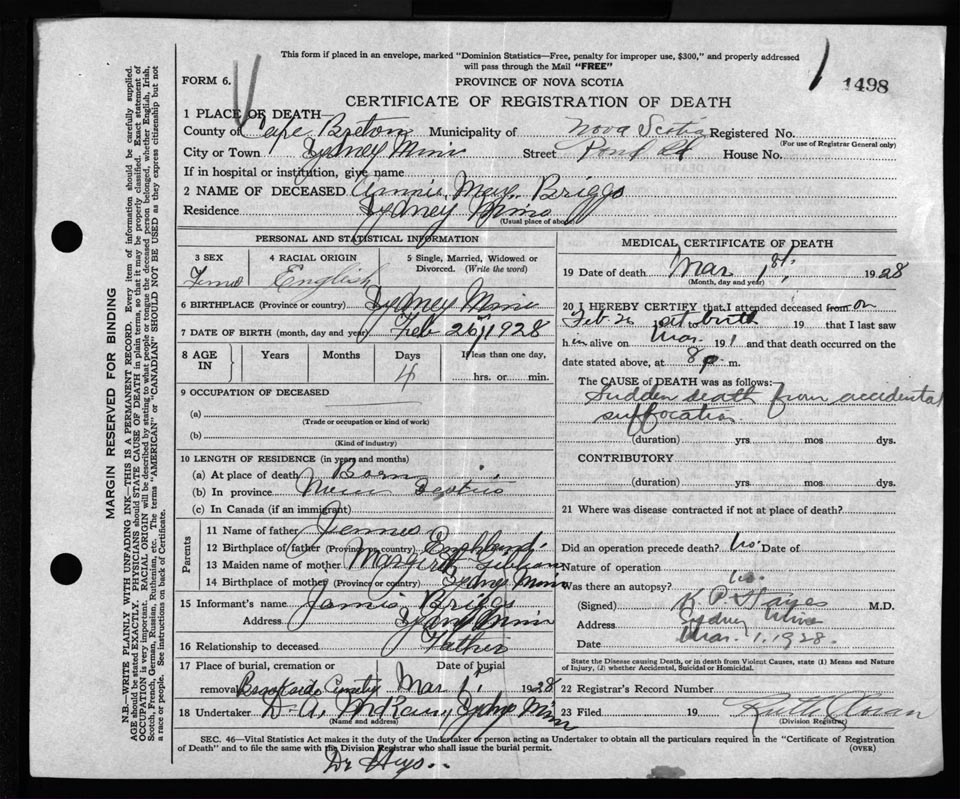 This form if placed in an envelope, marked "Dominion Statistics—Free, penalty for improper use, $300," and properly addressed
will pass through the Mail "FREE"
FORM 6.
PROVINCE OF NOVA SCOTIA
1 1498
CERTIFICATE OF REGISTRATION OF DEATH
MARGIN RESERVED FOR BINDING
N.B.—WRITE PLAINLY WITH UNFADING INK—THIS IS A PERMANENT RECORD. Every item of information should be carefully supplied.
AGE should be stated EXACTLY. PHYSICIANS should STATE CAUSE OF DEATH in plain terms, so that it may be properly classified. Exact statement of
OCCUPATION is very important. RACIAL ORIGIN will be described by stating to what people or tongue the deceased person belonged, whether English, Irish,
Scotch, French, German, Russian, Ruthenian, etc. The terms "AMERICAN" or "CANADIAN" SHOULD NOT BE USED as they express citizenship but not
a race or people. See instructions on back of Certificate.
1 PLACE OF DEATH
County of Cape Breton Municipality of Nova Scotia Registered No.
(For use of Registrar General only)
City or Town Sydney Mines Street Pond Rd House No.
If in hospital or institution, give name
2 NAME OF DECEASED Annie May Briggs
Residence Sydney Mines
(Usual place of abode)
PERSONAL AND STATISTICAL INFORMATION
3 SEX 4 RACIAL ORIGIN 5 Single, Married, Widowed or
Divorced. (Write the word)
English
6 BIRTHPLACE (Province or country) Sydney Mines
7 DATE OF BIRTH (month, day and year) Feb 26, 1928
8 AGE IN Years Months Days If less than one day,
4 hrs. or min.
9 OCCUPATION OF DECEASED
(a)
(Trade or occupation or kind of work)
(b)
(Kind of industry)
10 LENGTH OF RESIDENCE (in years and months)
(a) At place of death Born
(b) In province Nova Scotia
(c) In Canada (if an immigrant)
Parents
11 Name of father James
12 Birthplace of father (Province or country) England
13 Maiden name of mother Margaret
14 Birthplace of mother (Province or country) Sydney Mines
15 Informant's name Jamie Briggs
Address Sydney Mines
16 Relationship to deceased Father
17 Place of burial, cremation or Date of burial
removal Brookside Cemetery Mar 1st 1928
18 Undertaker D. A. Sydney Mines
(Name and address)
MEDICAL CERTIFICATE OF DEATH
19 Date of death Mar 1st, 1928
(Month, day and year)
20 I HEREBY CERTIFY that I attended deceased from on
Feb 26 at birth 19 that I last saw
h im alive on Mar. 191 and that death occurred on the
date stated above, at 8 p m.
The CAUSE OF DEATH was as follows:
Sudden death from accidental
suffocation
(duration) yrs. mos dys.
CONTRIBUTORY
(duration) yrs. mos. dys.
21 Where was disease contracted if not at place of death?
Did an operation precede death? No Date of
Nature of operation
Was there an autopsy? No.
(Signed) K. P. Hayes M.D.
Address Sydney Mines
Date Mar. 1. 1928.
State the Disease causing Death, or in death from Violent Causes, state (1) Means and Nature
of Injury, (2) whether Accidental, Suicidal or Homicidal.
22 Registrar's Record Number
23 Filed 19 Ruth
(Division Registrar)
SEC. 46—Vital Statistics Act makes it the duty of the Undertaker or person acting as Undertaker to obtain all the particulars required in the "Certificate of Registration
of Death" and to file the same with the Division Registrar who shall issue the burial permit. (OVER)
Dr